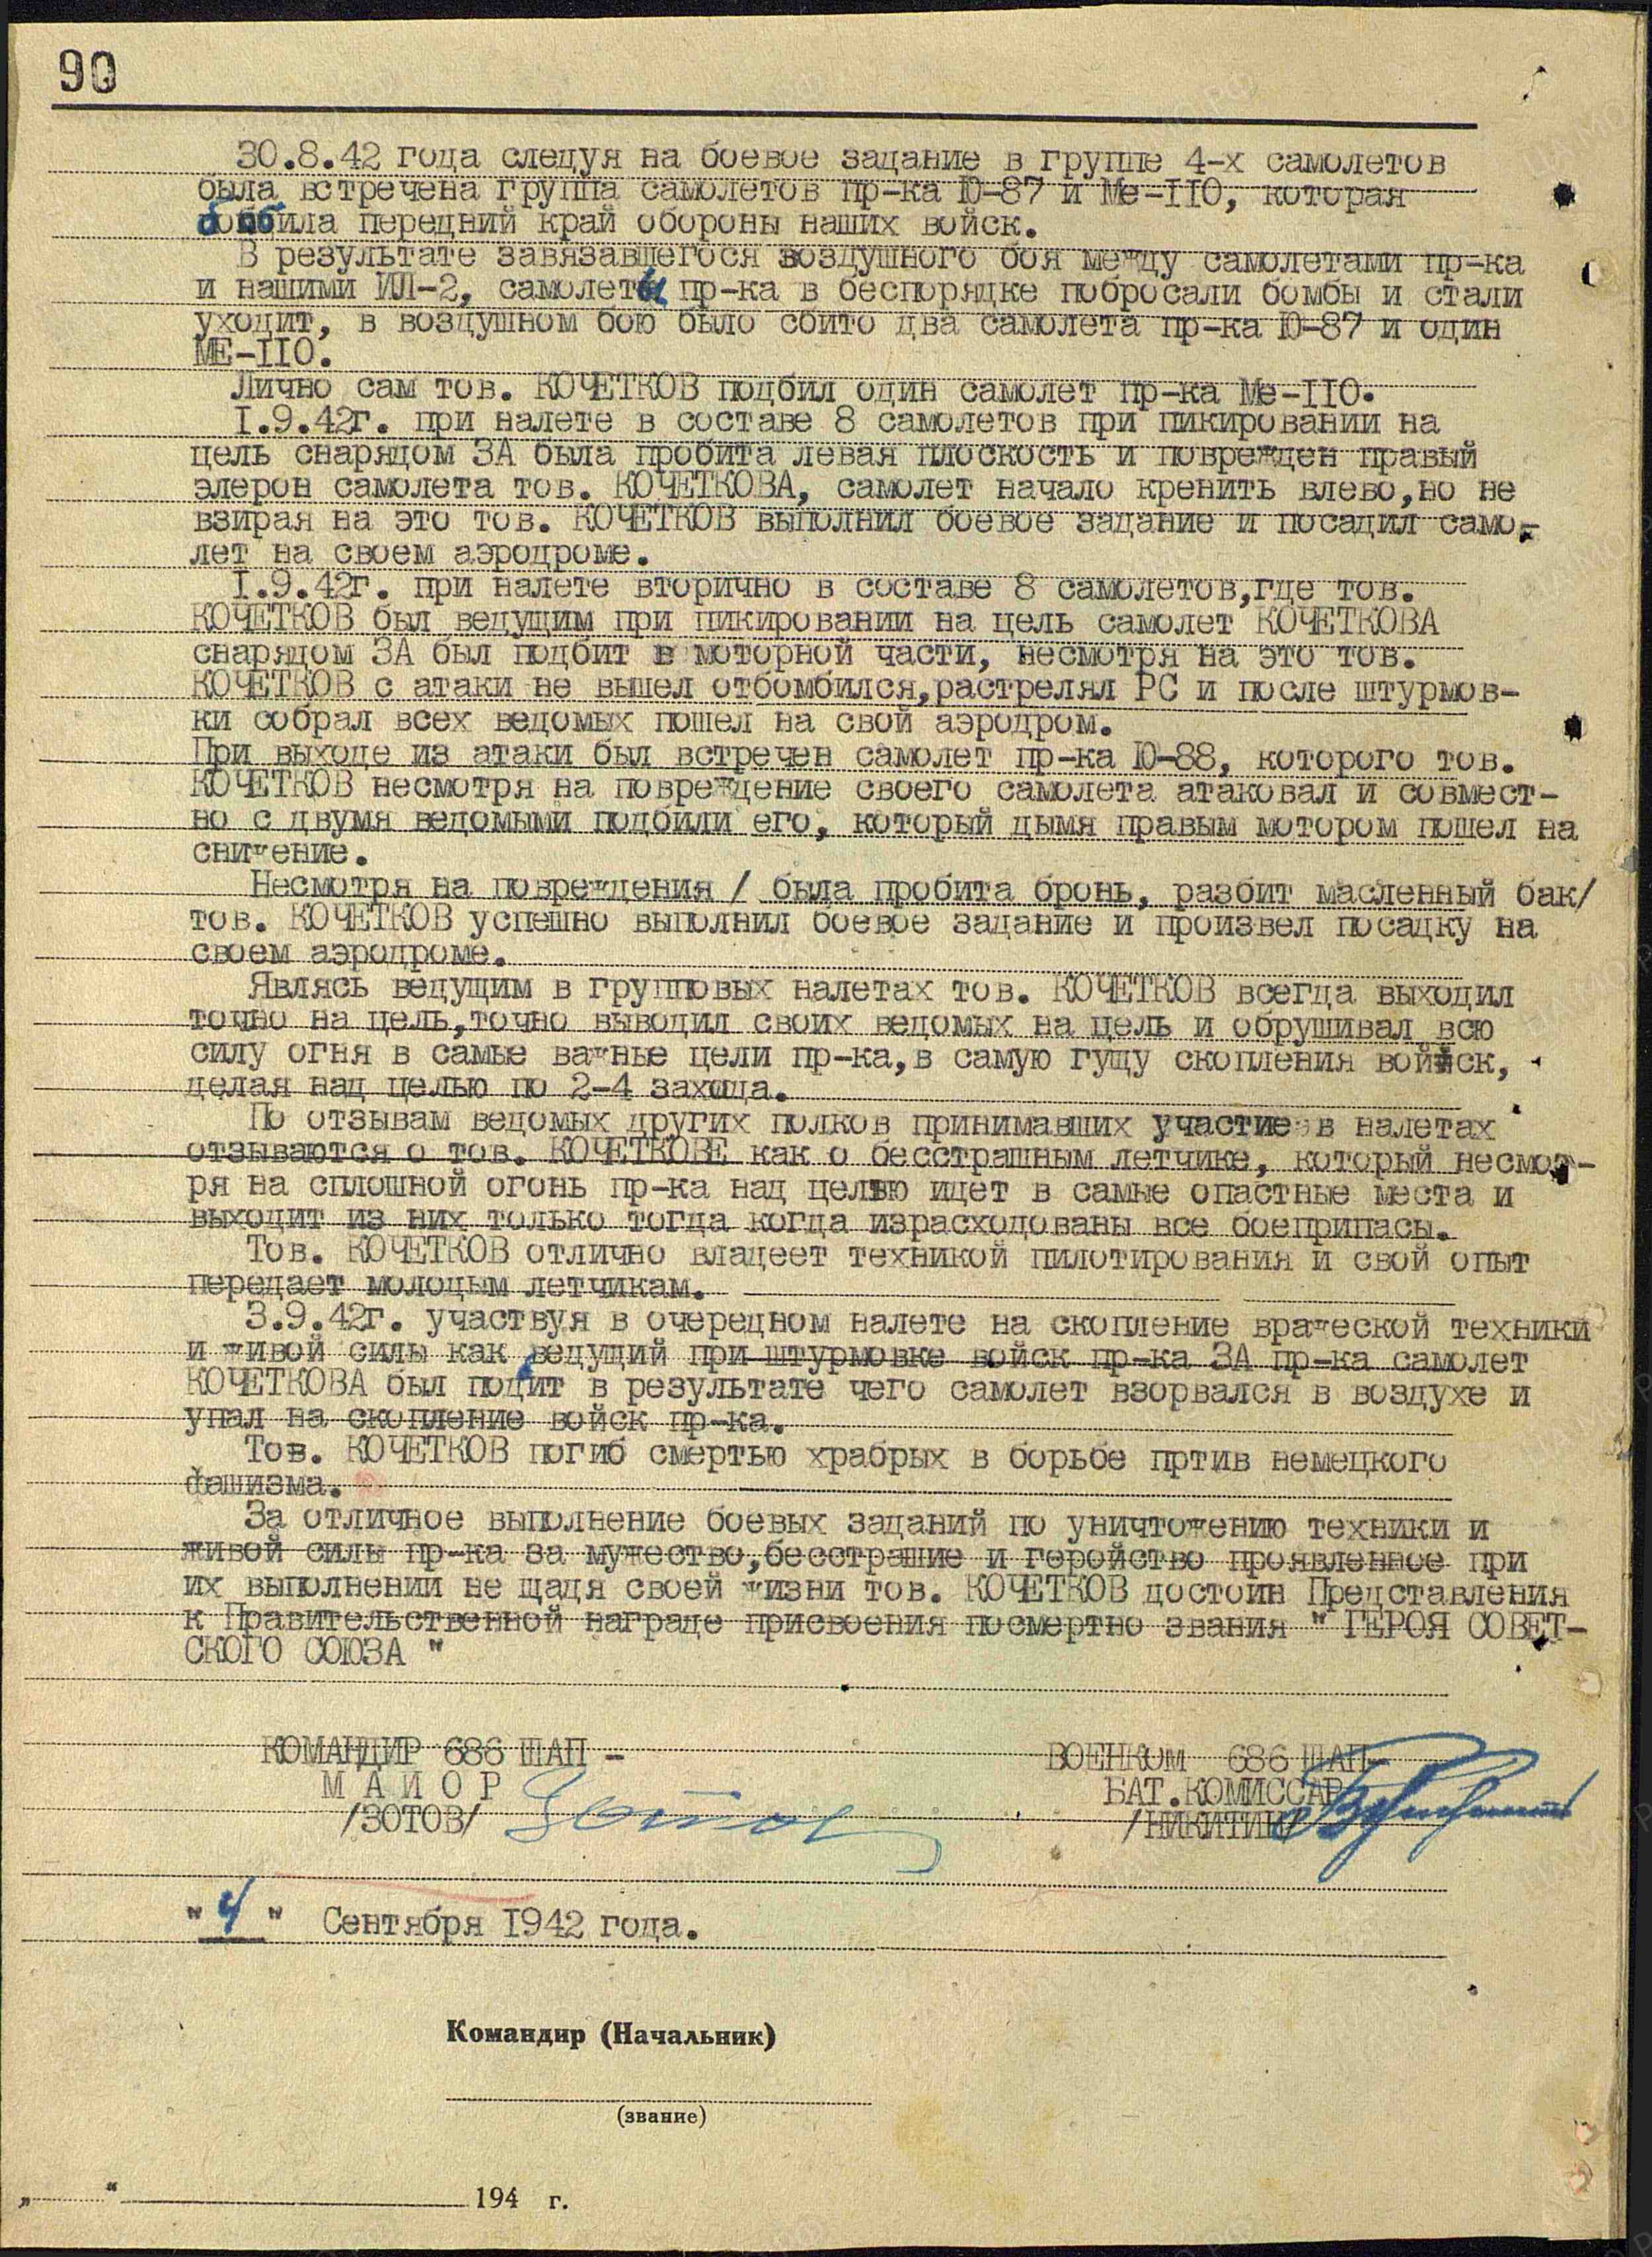 90
30.8.42 года следуя на боевое задание в группе 4-х самолетов
была встречена группа самолетов пр-ка Ю-87 и Ме-110, которая
бомбила передний край обороны наших войск.
В результате завязавшегося воздушного боя между самолетами пр-ка
и нашими ИЛ-2, самолеты пр-ка в беспорядке побросали бомбы и стали
уходит, в воздушном бою было сбито два самолета пр-ка Ю-87 и один
МЕ-110.
Лично сам тов. КОЧЕТКОВ подбил один самолет пр-ка Ме-110.
1.9.42г. при налете в составе 8 самолетов при пикировании на
цель снарядом ЗА была пробита левая плоскость и поврежден правый
элерон самолета тов. КОЧЕТКОВА, самолет начало кренить влево,но не
взирая на это тов. КОЧЕТКОВ выполнил боевое задание и посадил само-
лет на своем аэродроме.
1.9.42г. при налете вторично в составе 8 самолетов,где тов.
КОЧЕТКОВ был ведущим при пикировании на цель самолет КОЧЕТКОВА
снарядом ЗА был подбит в моторной части, несмотря на это тов.
КОЧЕТКОВ с атаки не вышел отбомбился,растрелял РС и после штурмов-
ки собрал всех ведомых пошел на свой аэродром.
При выходе из атаки был встречен самолет пр-ка Ю-88, которого тов.
КОЧЕТКОВ несмотря на повреждение своего самолета атаковал и совмест-
но с двумя ведомыми подбили его, который дымя правым мотором пошел на
снижение.
Несмотря на повреждения / была пробита бронь, разбит масленный бак/
тов. КОЧЕТКОВ успешно выполнил боевое задание и произвел посадку на
своем аэродроме.
Являсь ведущим в групповых налетах тов. КОЧЕТКОВ всегда выходил
точно на цель,точно выводил своих ведомых на цель и обрушивал всю
силу огня в самые важные цели пр-ка,в самую гущу скопления войск,
делая над целью по 2-4 захода.
По отзывам ведомых других полков принимавших участие в налетах
отзываются о тов. КОЧЕТКОВЕ как о бесстрашным летчике, который несмот-
ря на сплошной огонь пр-ка над целью идет в самые опастные места и
выходит из них только тогда когда израсходованы все боеприпасы.
Тов. КОЧЕТКОВ отлично владеет техникой пилотирования и свой опыт
передает молодым летчикам.
3.9.42г. участвуя в очередном налете на скопление вражеской техники
и живой силы как ведущий при штурмовке войск пр-ка ЗА пр-ка самолет
КОЧЕТКОВА был подбит в результате чего самолет взорвался в воздухе и
упал на скопление войск пр-ка.
Тов. КОЧЕТКОВ погиб смертью храбрых в борьбе пртив немецкого
фашизма.
За отличное выполнение боевых заданий по уничтожению техники и
живой силы пр-ка за мужество,бесстрашие и геройство проявленное при
их выполнении не щадя своей жизни тов. КОЧЕТКОВ достоин Представления
к Правительственной награде присвоения посмертно звания " ГЕРОЯ СОВЕТ-
СКОГО СОЮЗА "
КОМАНДИР 686 ШАП - ВОЕНКОМ 686 ШАП-
МАЙОР БАТ.КОМИССАР
/ЗОТОВ/ Зотов /НИКИТИН/
"4" Сентября 1942 года.
Командир (Начальник)
(звание)
„ “ 194 г.